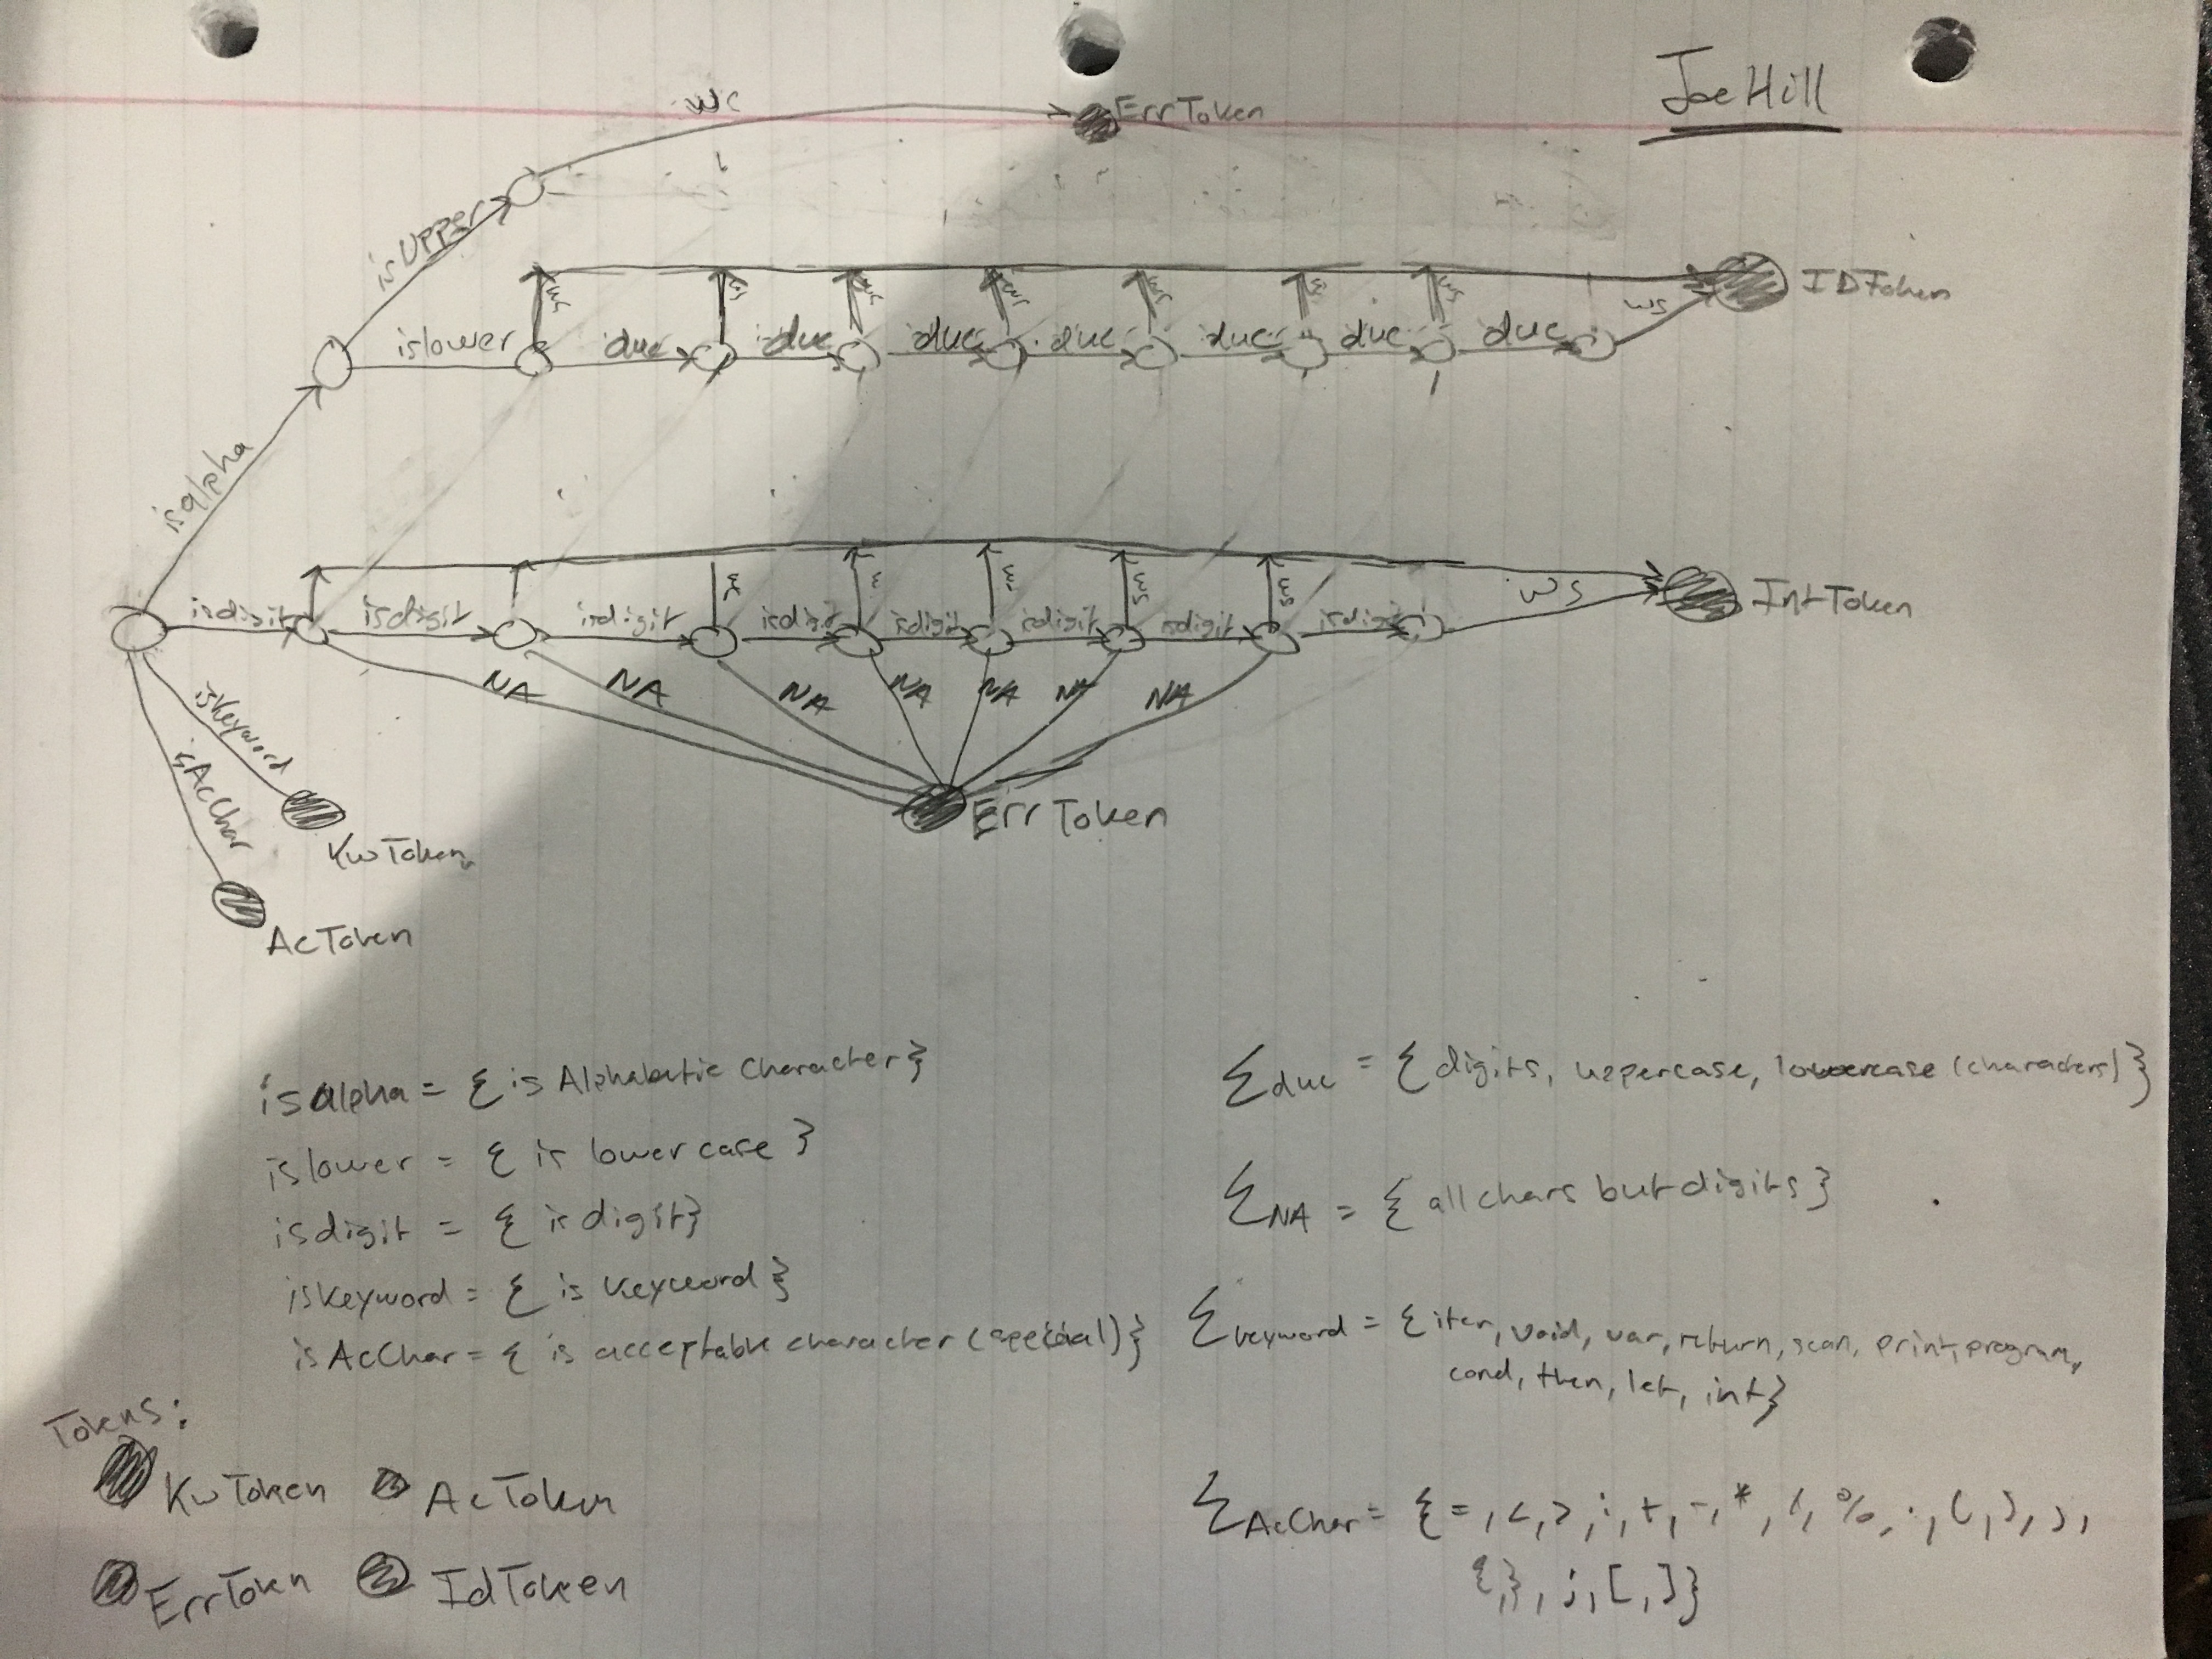 Joe Hill
isalpha
isUpper
ws
ErrToken
islower
duc
duc
duc
duc
duc
duc
duc
ws
IDToken
isdigit
isdigit
isdigit
isdigit
isdigit
isdigit
isdigit
isdigit
ws
IntToken
NA
NA
NA
NA
NA
NA
NA
ErrToken
iskeyword
KwToken
isAcChar
AcToken
isalpha = { is Alphabetic character}
islower = { is lower case }
isdigit = { is digit}
iskeyword = { is keyword }
isAcChar = { is acceptable character (special)}
Σduc = { digits, uppercase, lowercase (characters)}
ΣNA = { all chars but digits }
Σkeyword = { iter, void, var, return, scan, print, program,
cond, then, let, int}
ΣAcChar = { =, <, >, :, +, -, *, /, %, ., (, ), ,,
{, }, ;, [, ]}
Tokens:
KwToken AcToken
ErrToken IdToken